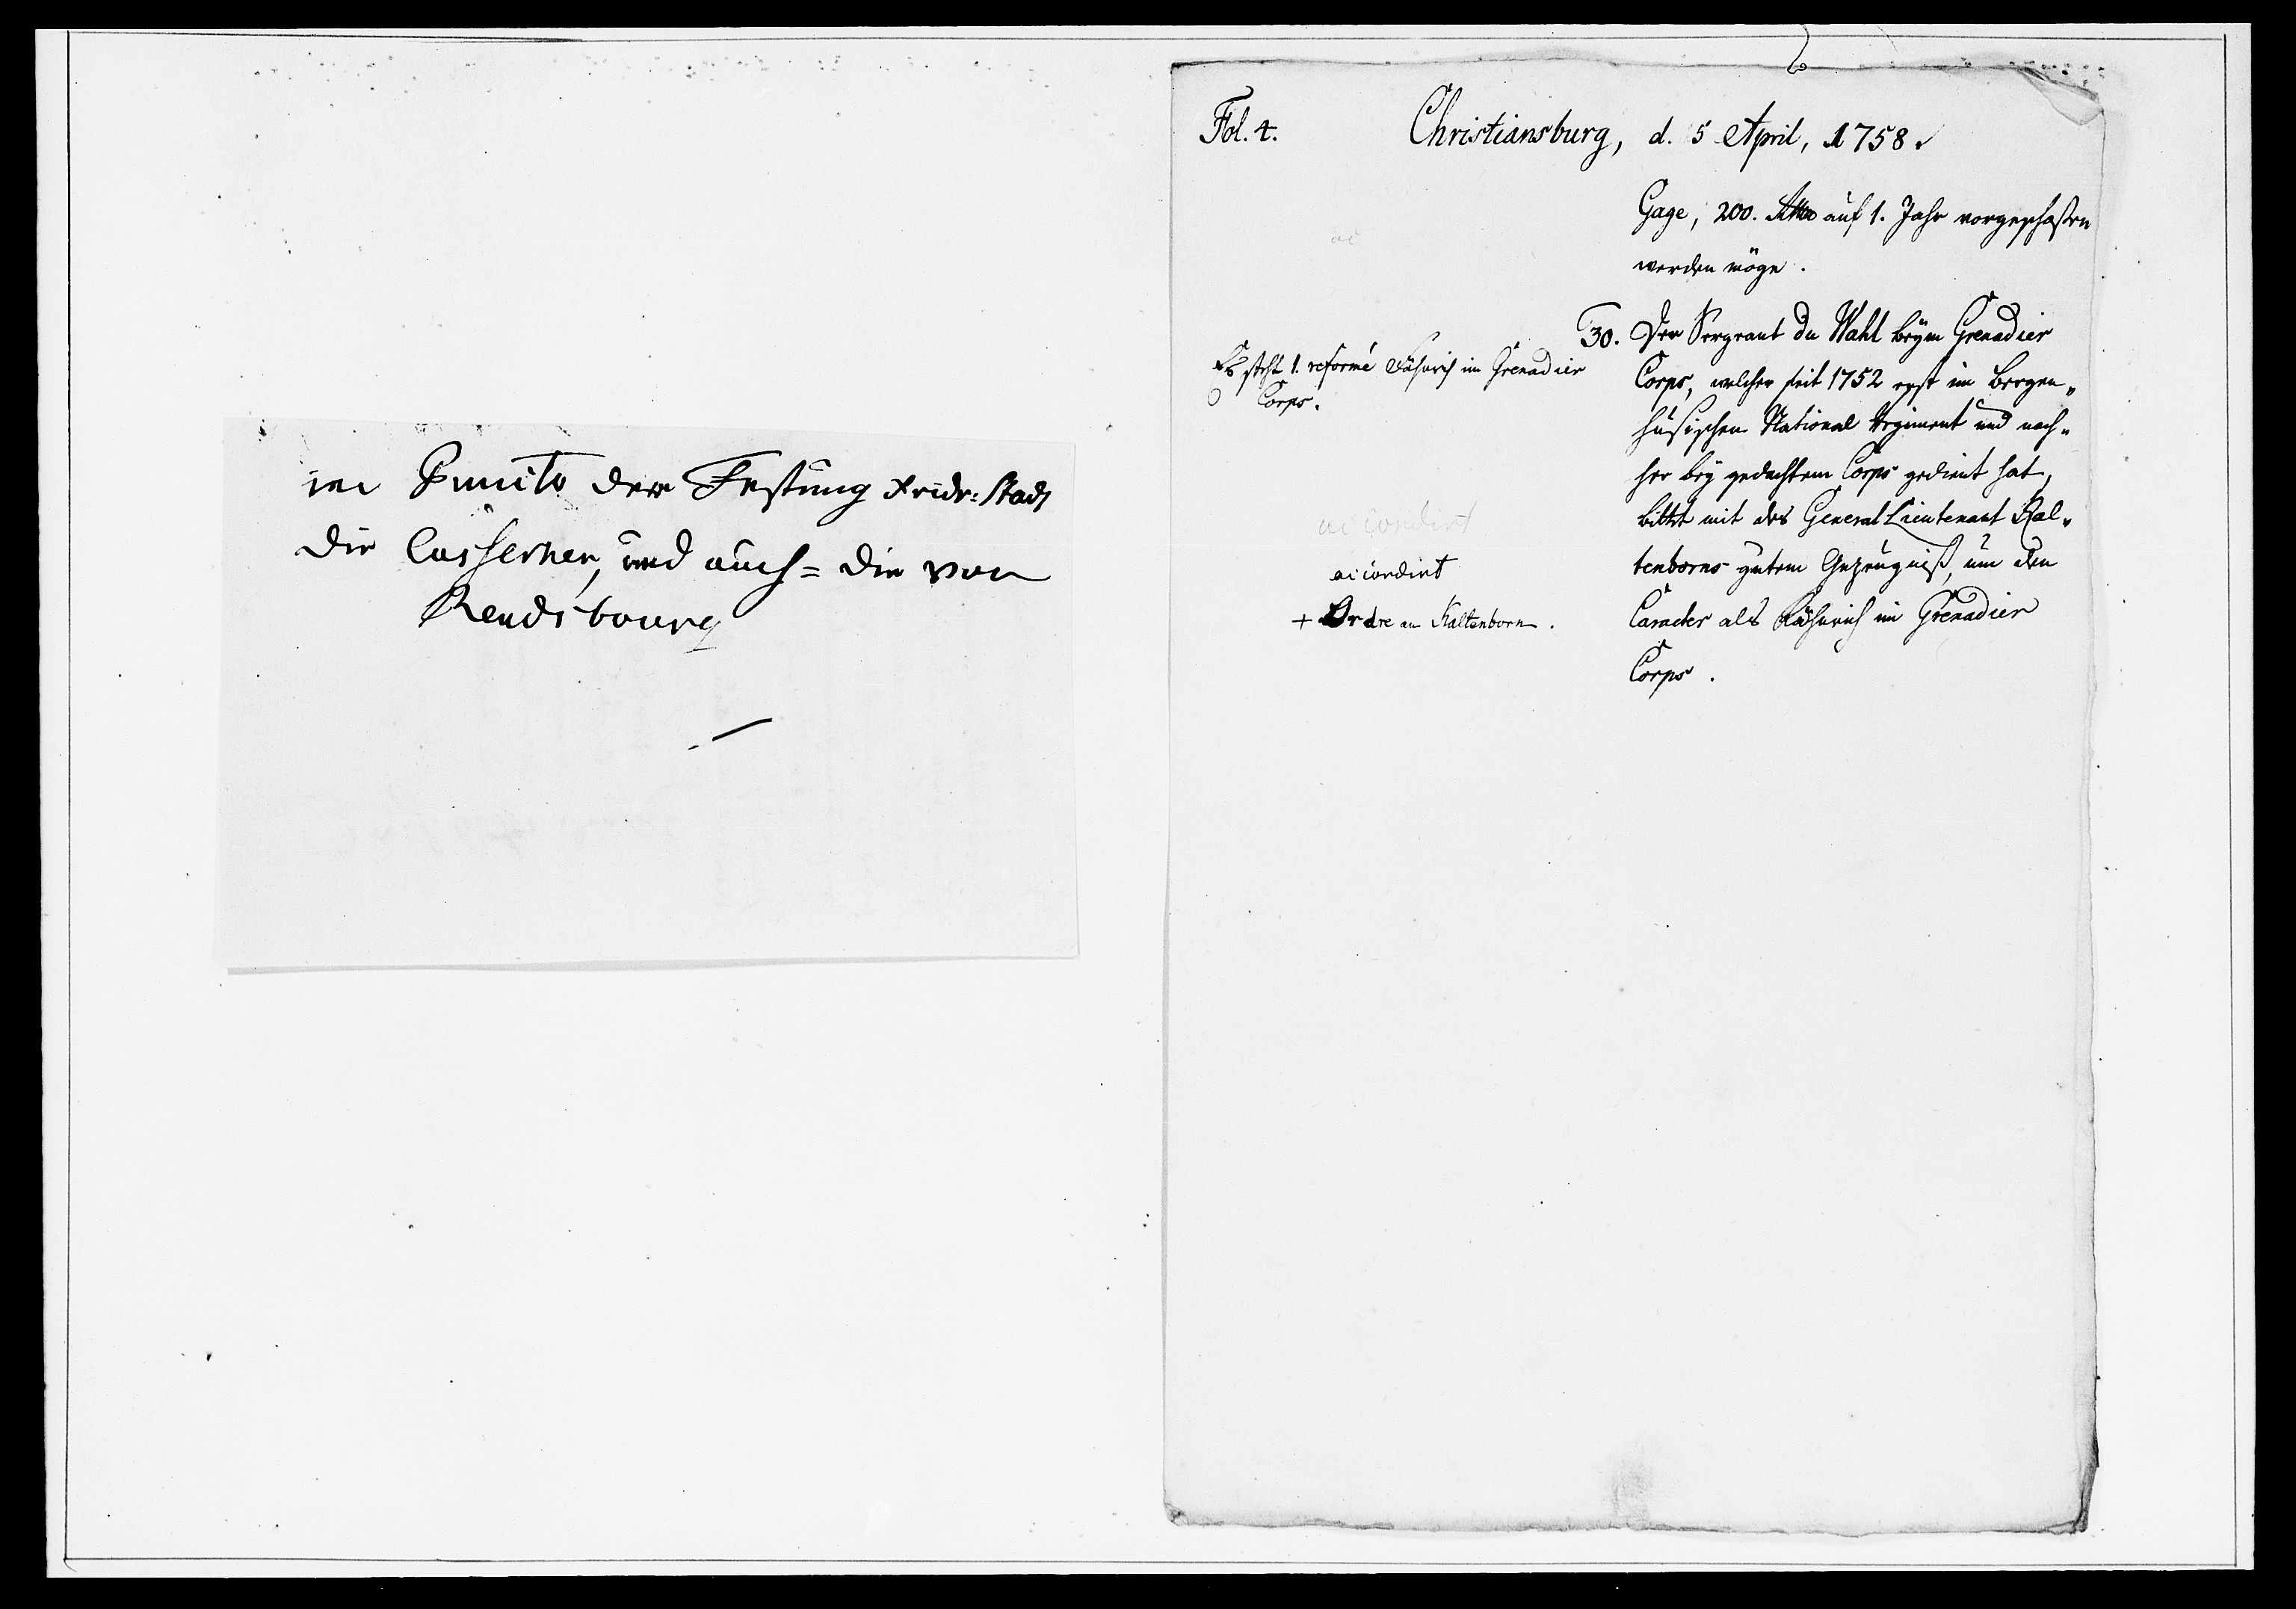 in Puncto der Festung Fridr: Stadt
die Cassernen, und auch = die von
Rendsbourg
Fol. 4. Christiansburg, d. 5 April, 1758.
Gage, 200. auf 1. Jahr vorgeschossen
werden möge.
Es steht 1. reformé Fähnrich im Grenadier
Corps.
ac
accordirt
accordirt
+ Ordre an Kaltenborn.
30. Der Sergeant du Wahl beym Grenadier
Corps, welcher seit 1752 erst im Bergen„
husischen National Regiment und nach„
her bey gedachtem Corps gedient hat,
bittet mit des General Lieutenant Kal„
tenborns gutem Gezeugniß, um den
Caracter als Fähnrich im Grenadier
Corps.